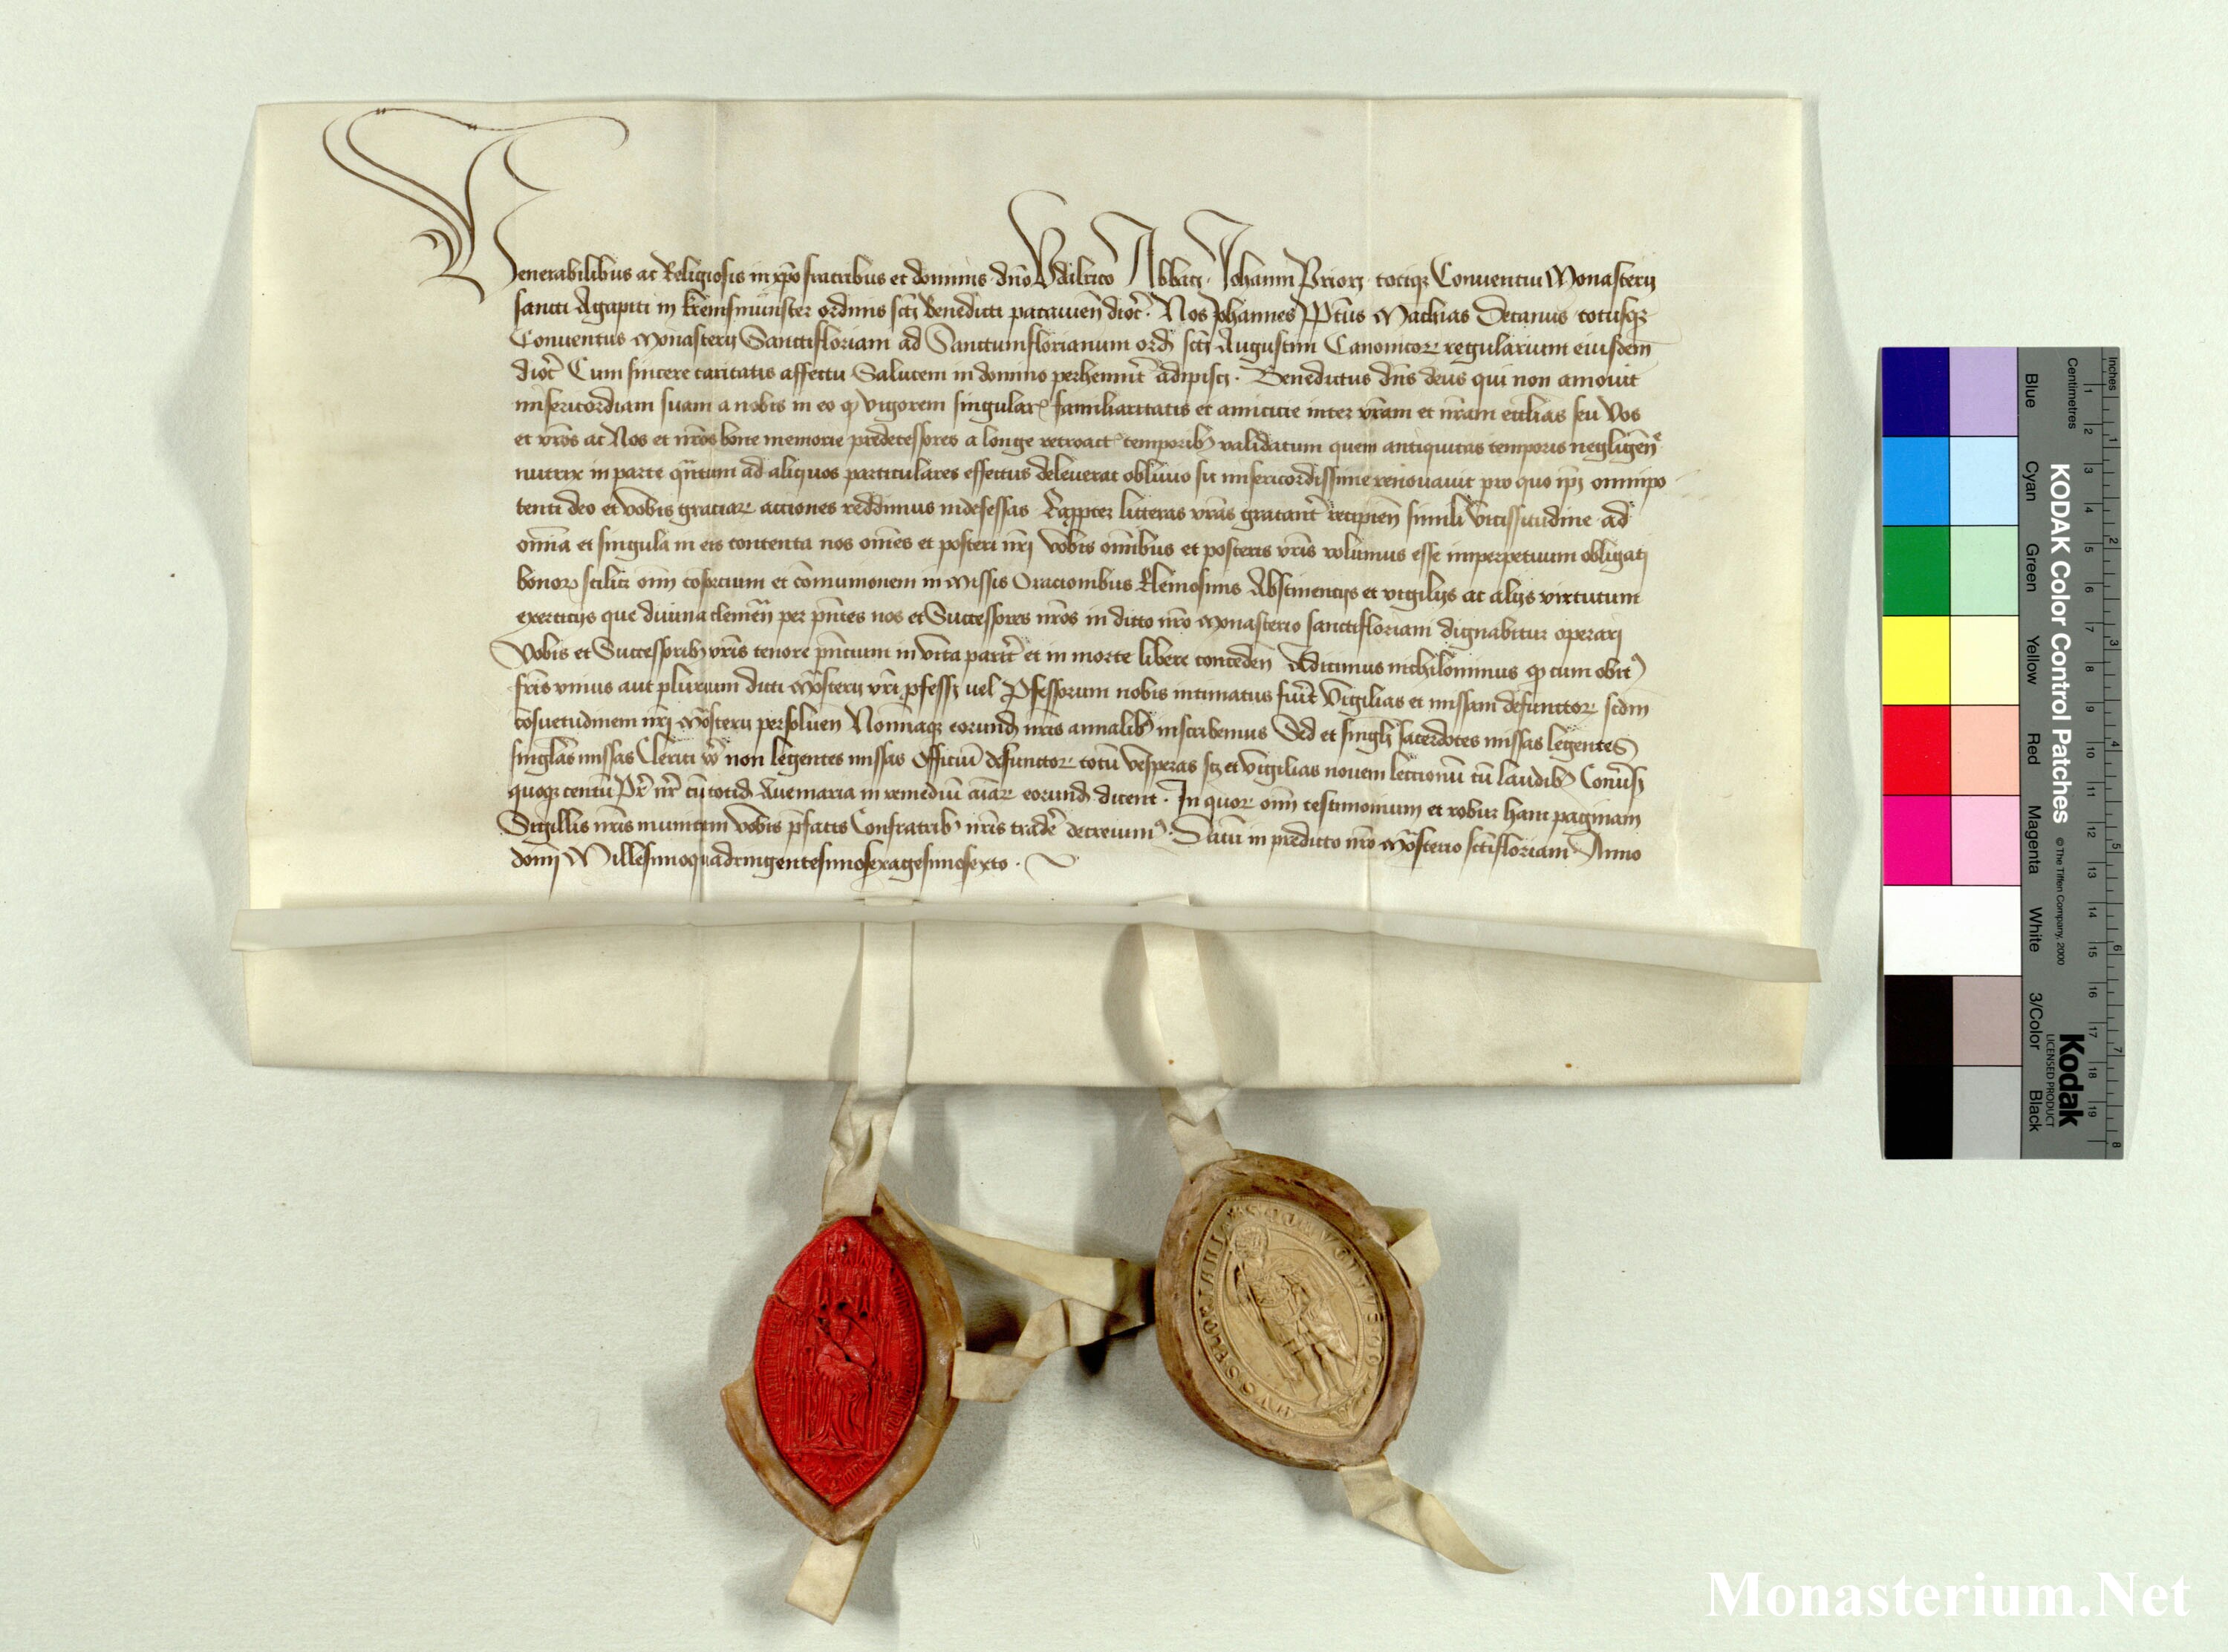 Venerabilibus ac Religiosis in xp̄o fratribus et dominis dn̄o Vdalrico Abbatj Johanni Priorj totiqȝ Conuentui Monasterij
sancti Agapiti in Kremsmūnster ordinis sctj Benedicti patauien̄ dioc̄. Nos Johannes Pp̄tus Mathias Decanus totusqȝ
Conuentus Monasterij Sanctifloriani ad Sanctumflorianum ord̄ sctj Augustini Canonicoꝝ regularium eiusdem
dioc̄ Cum sincere caritatis affectu Salutem in domino perhennit̄ adipiscj. Benedictus dn̄s deus qui non amouit
misericordiam suam a nobis in eo ꝙ vigorem singular̄ familiaritatis et amicicie inter vr̄am et nr̄am eccl̄ias seu Vos
et vr̄os ac Nos et nr̄os bone memorie predecessores a longe retroact̄ temporibȝ validatum quem antiquitas temporis negligen̄
nutrix in parte qn̄tum ad aliquos particulares effectus deleuerat obliuio sic misericordissime renouauit pro quo ip̄j omnipo
tenti deo et vobis graciaꝝ acciones reddimus indefessas Eapp̄ter litteras vr̄as gratant̄ recipien̄ simili vicissitudine ad
om̄ia et singula in eis contenta nos om̄es et posteri nr̄j vobis om̄ibus et posteris vr̄is volumus esse imperpetuum obligatj
bonoꝝ scilicȝ om̄i cōsorcium et cōmunionem in Missis Oracionibus Elemosinis Abstinencijs et vigilijs ac alijs virtutum
exercicijs que diuina clemen̄ per pn̄tes nos et Successores nr̄os in dicto nr̄o Monasterio sanctifloriani dignabitur operarj
Vobis et Successoribȝ vr̄is tenore pn̄cium in vita parit̄ et in morte libere conceden̄ Adicimus nichilominus ꝙ cum obit᷒
fr̄is vnius aut plurium dicti Mōsterij vr̄i ꝓfessj uel Ꝓfessorum nobis intimatus fuit̄ Vigilias et missam defunctoꝝ scdm̄
cōsuetudinem nr̄j Mōsterij persoluen̄ Nominaqȝ eorundȝ nr̄is annalibȝ inscribemus Sed et singlī sacerdotes missas legentes
singlas missas Clerici vo non legentes missas Officiū defunctoꝝ totū vesperas scȝ et vigilias nouem leccionū cū laudibȝ Conūsj
quoqȝ centū Pr̄ nr̄ cū totidȝ Auemaria in remediū aīaꝝ eorundȝ dicent. In quoꝝ om̄i testimonium et robur hanc paginam
Sigillis nr̄is munitam vobis p̄fatis Confratribȝ nr̄is trade decreuim᷒. Datū in predicto nr̄o Mōsterio sctīfloriani Anno
dominj Millesimoquadringentesimosexagesimosexto.
KODAK Color Control Patches © The Tiffen Company, 2000
Kodak
LICENSED PRODUCT
Blue Cyan Green Yellow Red Magenta White 3/Color Black
Centimetres 1 2 3 4 5 6 7 8 9 10 11 12 13 14 15 16 17 18 19
Inches 1 2 3 4 5 6 7 8
Monasterium.Net